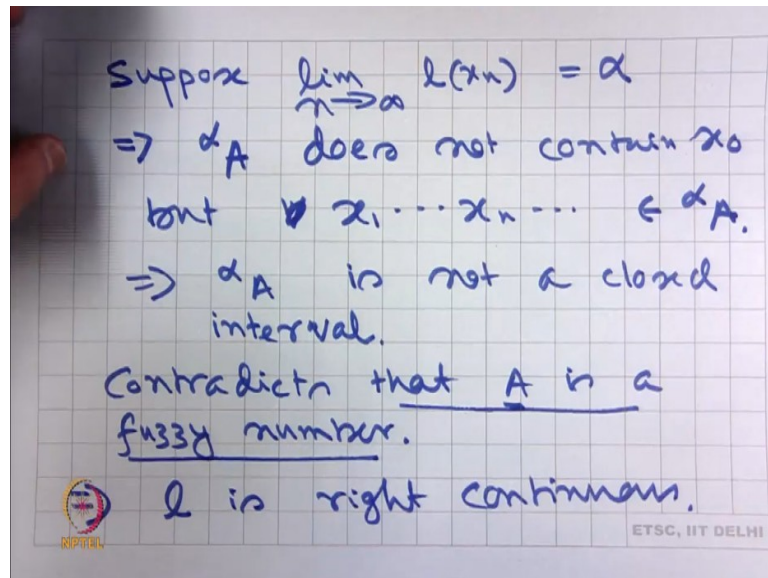 Suppose lim l(xn) = α
n→∞
⇒ αA does not contain x0
but x1 ... xn ... ∈ αA.
⇒ αA is not a closed
interval.
Contradicts that A is a
fuzzy number.
⇒ l is right continuous.
NPTEL
ETSC, IIT DELHI